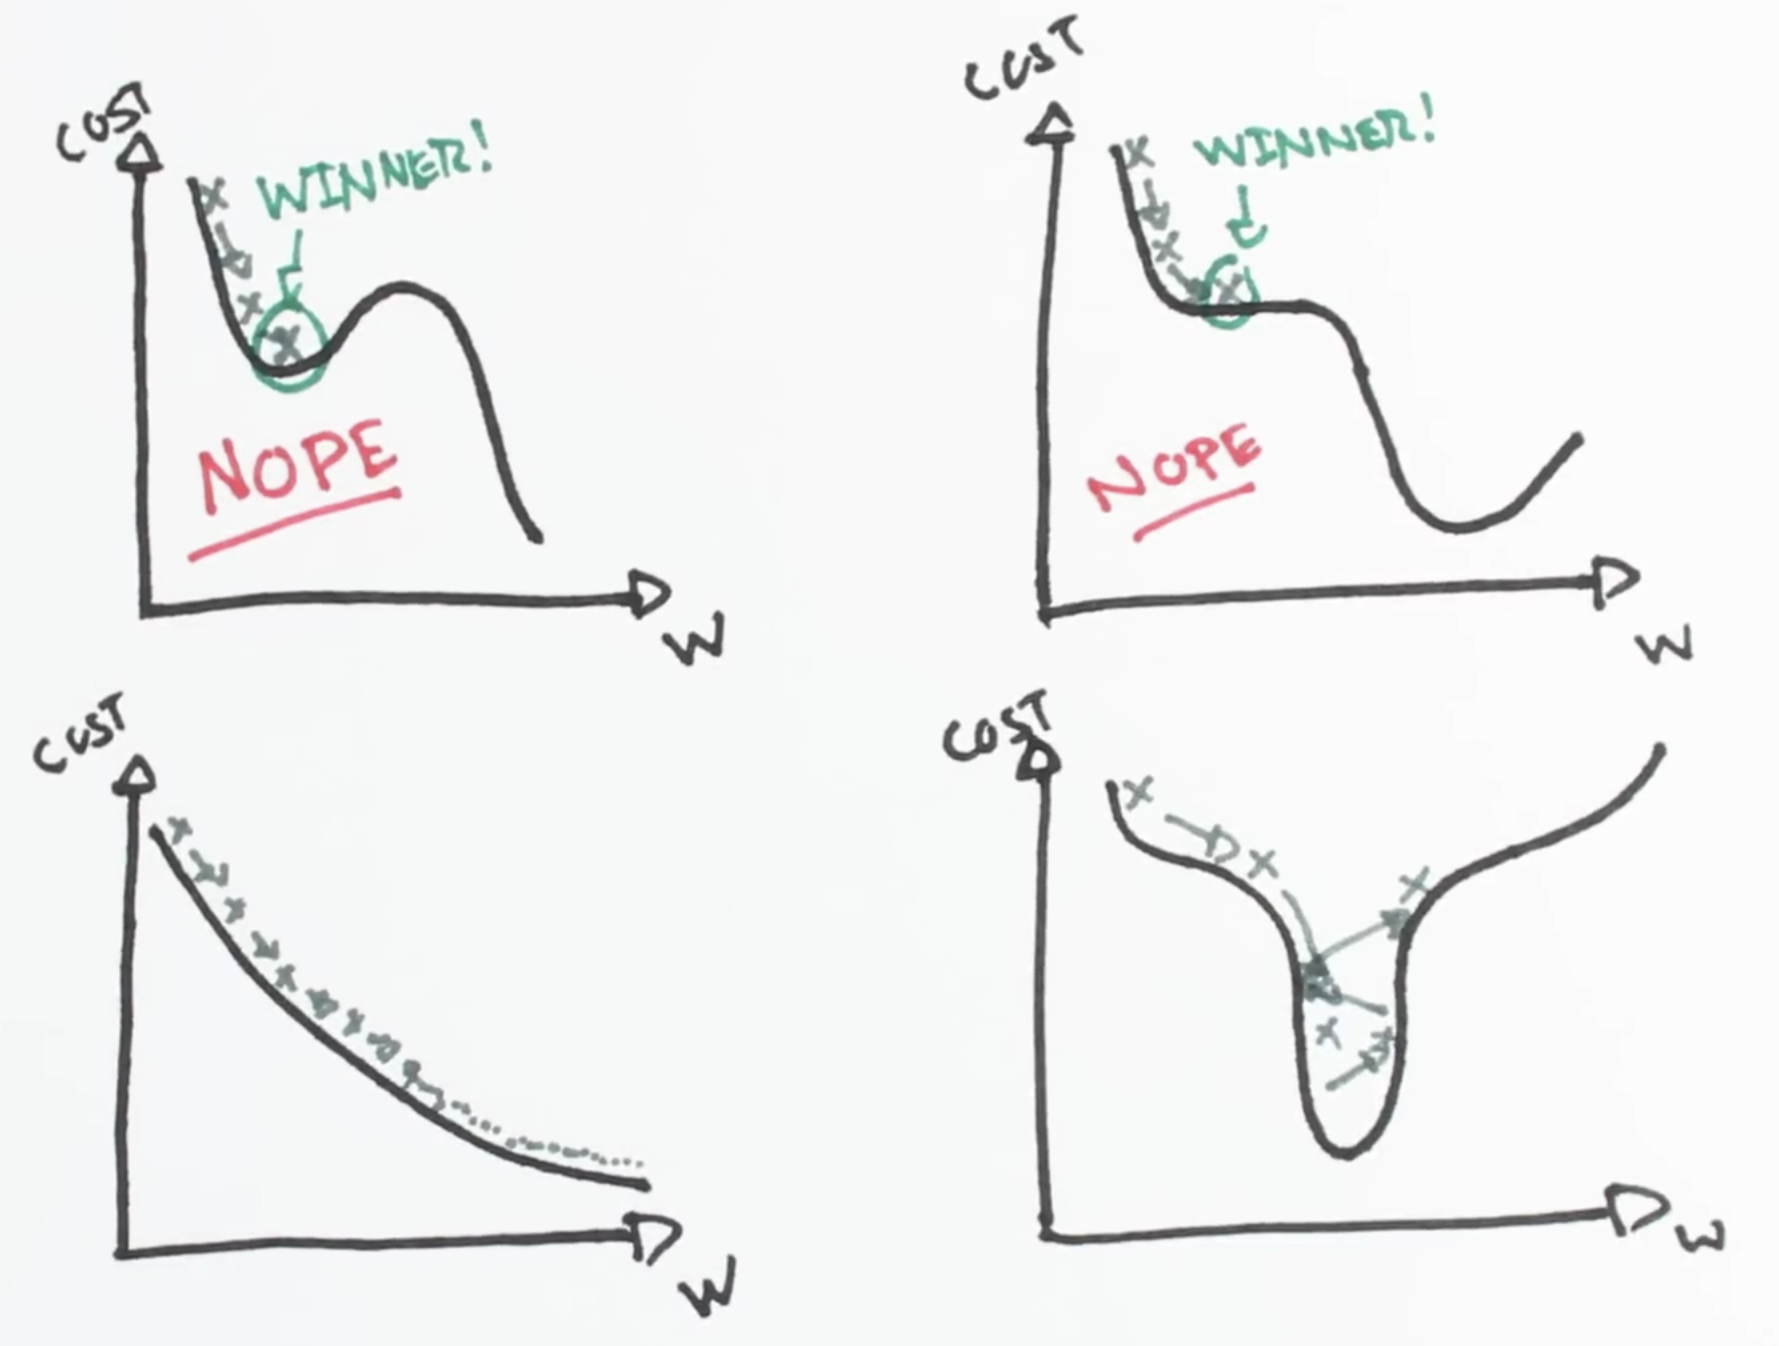 COST
WINNER!
NOPE
W
COST
WINNER!
NOPE
W
COST
W
COST
W